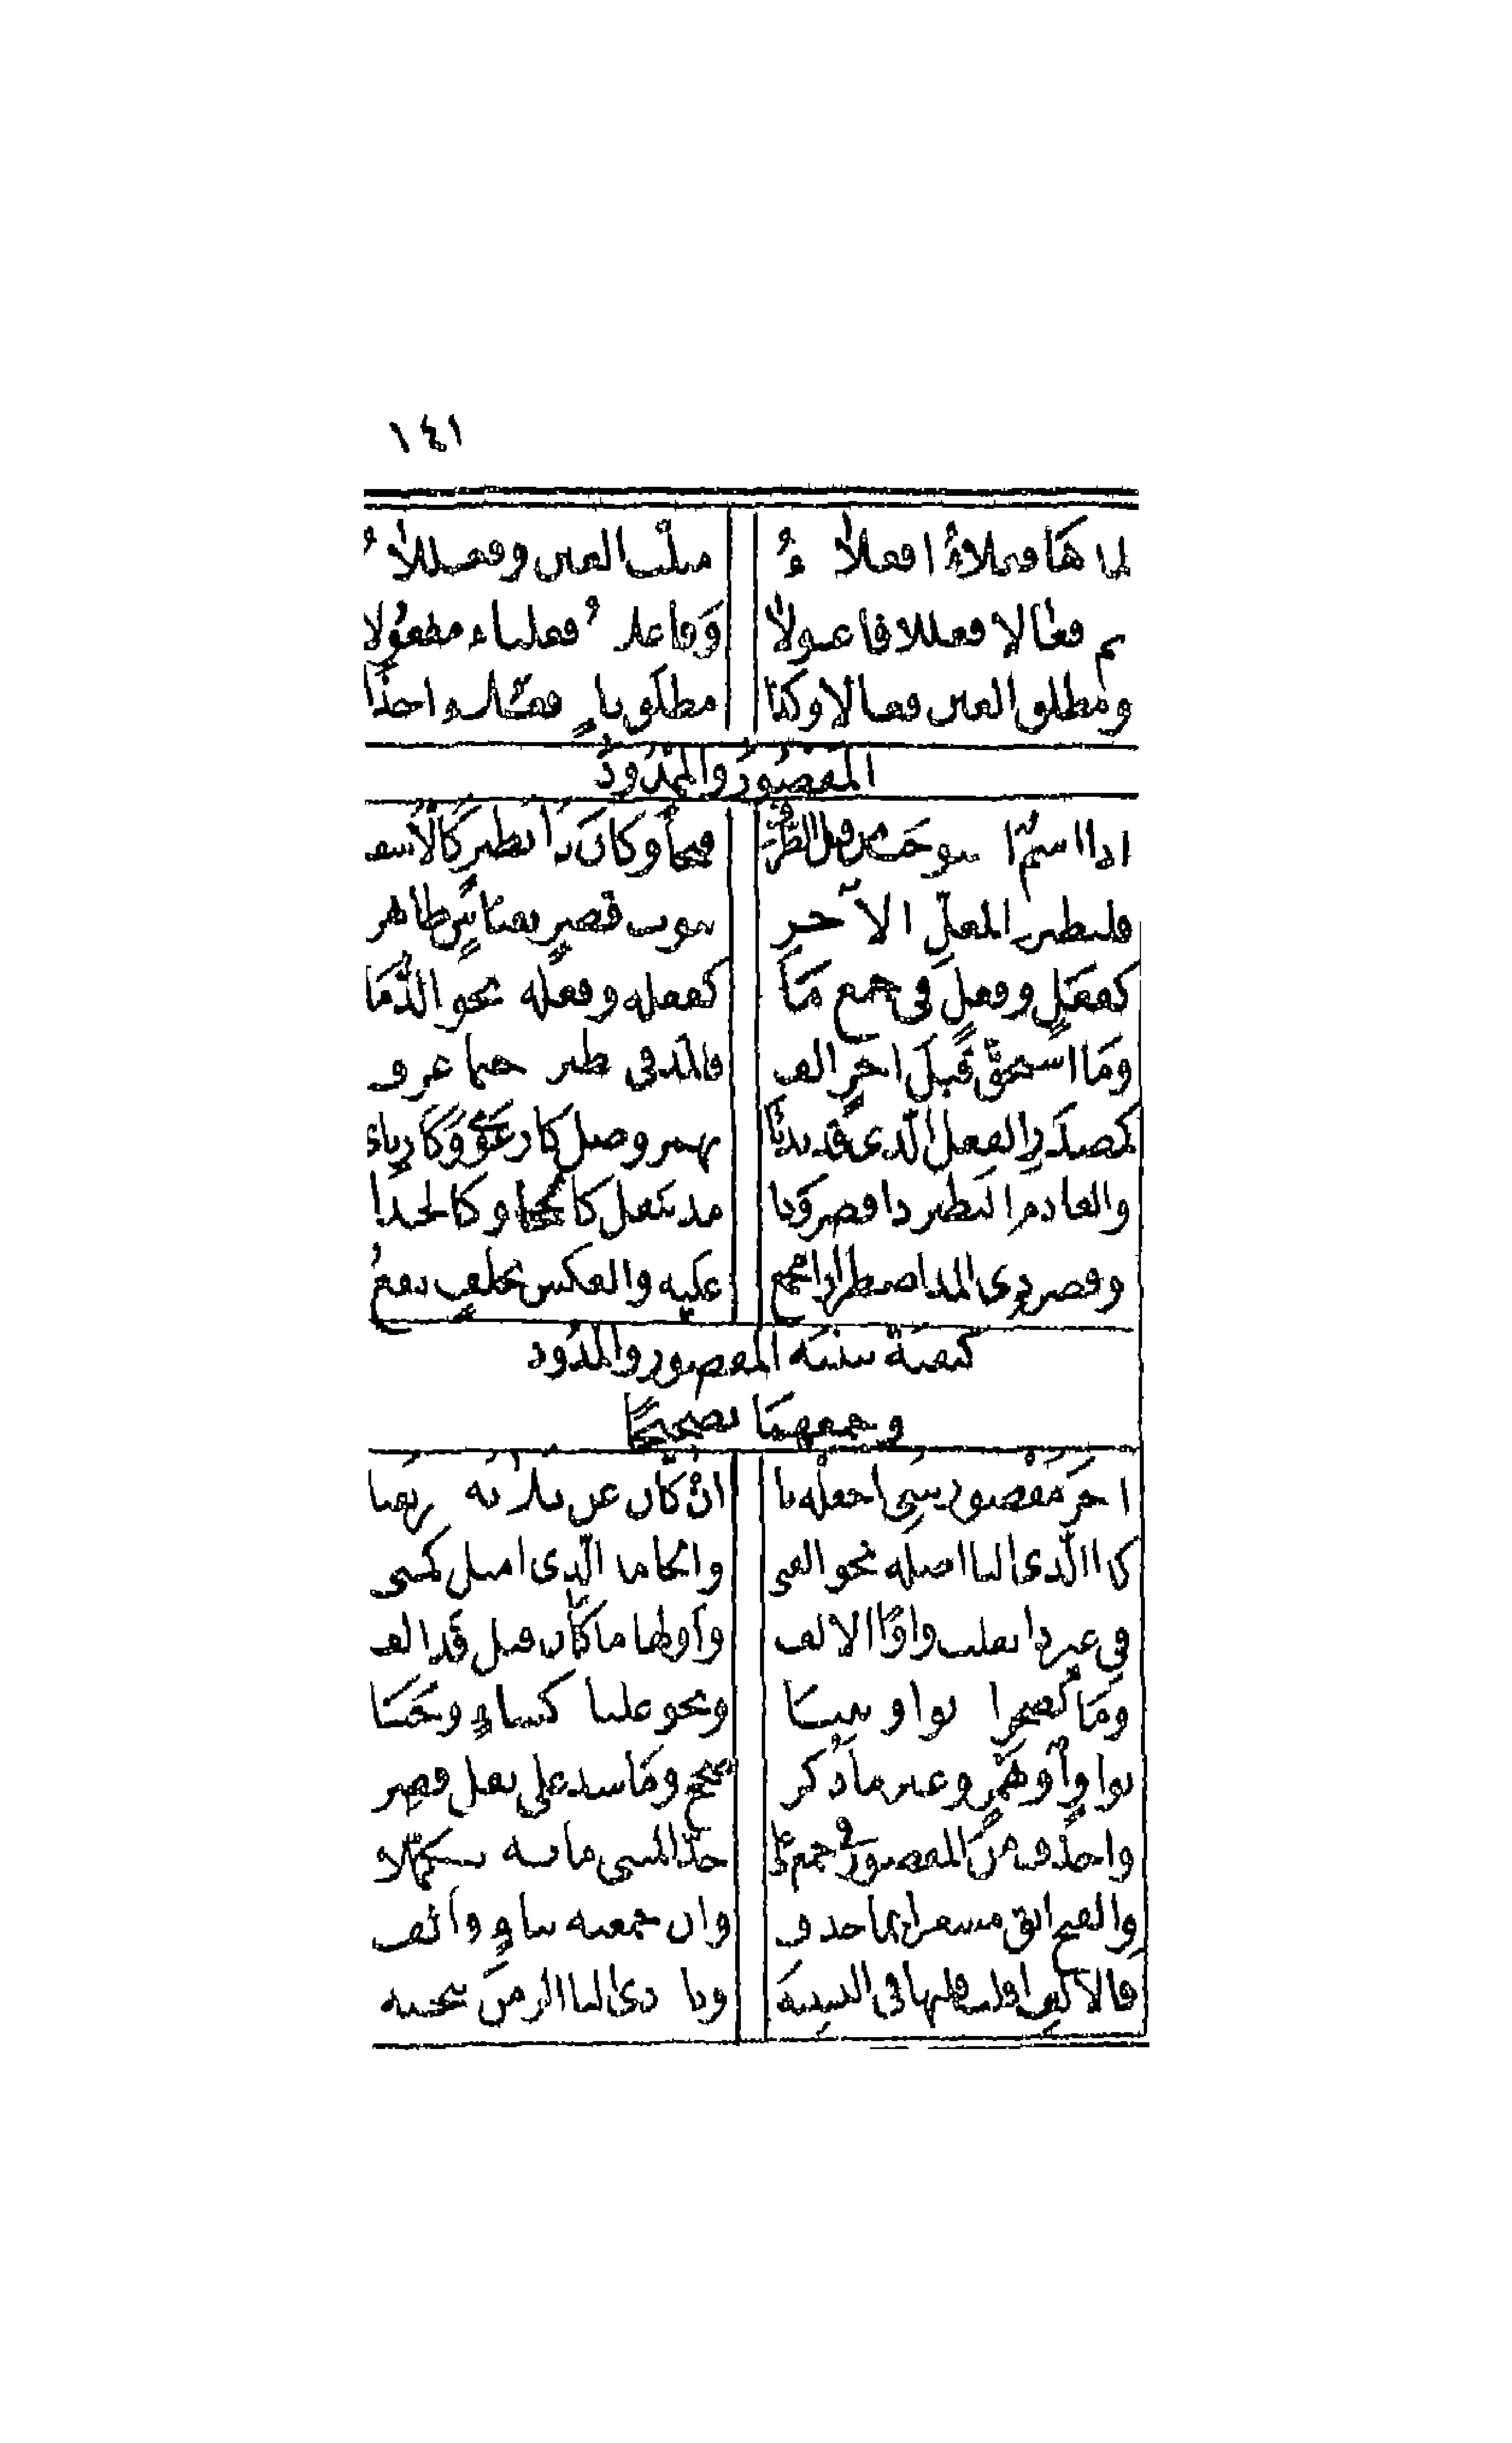 ١٤١
لمدها فعلاء افعلاء مثلث العين وفعللاء
ثم فعالا فعللا فاعولا وفاعلاء فعلياء مفعولا
ومطلق العين فعالا وكذا مطلق فاء فعلاء اخذا
المقصور والممدود
اذا اسم استوجب من قبل الطرف فتحا وكان ذا نظير كالاسف
فلنظيره المعل الآخر ثبوت قصر بقياس ظاهر
كفعل وفعل فى جمع ما كفعلة وفعلة نحو الدما
وما استحق قبل آخر الف فالمد فى نظيره حتما عرف
كمصدر الفعل الذى قد بدئا بهمز وصل كارعوى وكارتاى
والعادم النظير ذا قصر وذا مد بنقل كالحجا وكالحذا
وقصر ذى المد اضطرارا مجمع عليه والعكس بخلف يقع
كيفية تثنية المقصور والممدود
وجمعهما تصحيحا
آخر مقصور تثنى اجعله يا ان كان عن ثلاثة مرتقيا
كذا الذى اليا اصله نحو الفتى والجامد الذى اميل كمتى
فى غير ذا تقلب واوا الالف واولها ما كان قبل قد الف
وما كصحرا بواو ثنيا ونحو علباء كساء وحيا
بواو او همز وغير ما ذكر صحح وما شذ على نقل قصر
واحذف من المقصور فى جمع على حد المثنى ما به تكملا
والفتح ابق مشعرا بما حذف وان جمعته بتاء والف
فالالف اقلب قلبها فى التثنية وتاء ذى التا الزمن تنحية